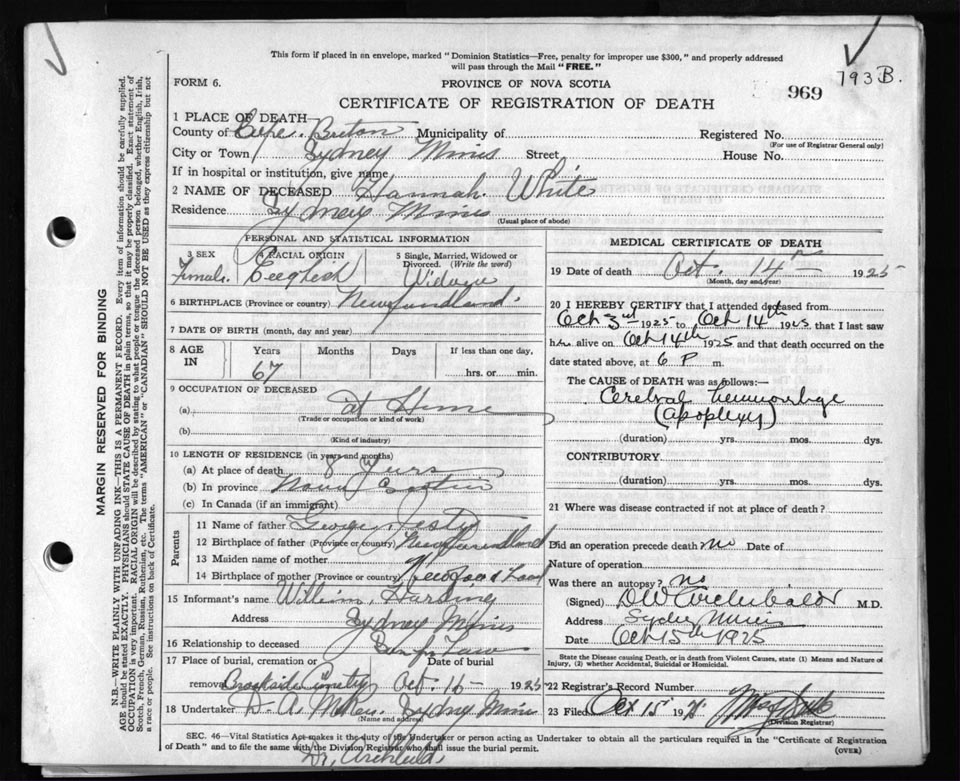 This form if placed in an envelope, marked "Dominion Statistics—Free, penalty for improper use $300," and properly addressed
will pass through the Mail "FREE."
793 B.
FORM 6.
PROVINCE OF NOVA SCOTIA
969
CERTIFICATE OF REGISTRATION OF DEATH
1 PLACE OF DEATH
County of Cape Breton Municipality of Registered No.
(For use of Registrar General only)
City or Town Sydney Mines Street House No.
If in hospital or institution, give name
2 NAME OF DECEASED Hannah White
Residence Sydney Mines
(Usual place of abode)
PERSONAL AND STATISTICAL INFORMATION
3 SEX 4 RACIAL ORIGIN 5 Single, Married, Widowed or
Divorced. (Write the word)
Female English Widow
6 BIRTHPLACE (Province or country) Newfoundland
7 DATE OF BIRTH (month, day and year)
8 AGE IN Years Months Days If less than one day,
67 hrs. or min.
9 OCCUPATION OF DECEASED
(a) at Home
(Trade or occupation or kind of work)
(b)
(Kind of industry)
10 LENGTH OF RESIDENCE (in years and months)
(a) At place of death 8 years
(b) In province Nova Scotia
(c) In Canada (if an immigrant)
Parents
11 Name of father George
12 Birthplace of father (Province or country) Newfoundland
13 Maiden name of mother
14 Birthplace of mother (Province or country) Newfoundland
15 Informant's name William Harding
Address Sydney Mines
16 Relationship to deceased Son in Law
17 Place of burial, cremation or Date of burial
removal Brookside Cemetery Oct. 16 1925
18 Undertaker D. A. Sydney Mines
(Name and address)
MEDICAL CERTIFICATE OF DEATH
19 Date of death Oct. 14th 1925
(Month, day and year)
20 I HEREBY CERTIFY that I attended deceased from
Oct 3rd 1925 to Oct 14th 1925 that I last saw
her alive on Oct 14th 1925 and that death occurred on the
date stated above, at 6 P m.
The CAUSE of DEATH was as follows:—
Cerebral hemorrhage
(apoplexy)
(duration) yrs. mos. dys.
CONTRIBUTORY
(duration) yrs. mos. dys.
21 Where was disease contracted if not at place of death?
Did an operation precede death no Date of
Nature of operation
Was there an autopsy? no
(Signed) DW Archibald M.D.
Address Sydney Mines
Date Oct 15th 1925
State the Disease causing Death, or in death from Violent Causes, state (1) Means and Nature of
Injury, (2) whether Accidental, Suicidal or Homicidal.
22 Registrar's Record Number
23 Filed Oct 15 192
(Division Registrar)
SEC. 46—Vital Statistics Act makes it the duty of the Undertaker or person acting as Undertaker to obtain all the particulars required in the "Certificate of Registration
of Death" and to file the same with the Division Registrar who shall issue the burial permit.
(OVER)
Dr. Archibald
MARGIN RESERVED FOR BINDING
N.B.—WRITE PLAINLY WITH UNFADING INK—THIS IS A PERMANENT RECORD. Every item of information should be carefully supplied.
AGE should be stated EXACTLY. PHYSICIANS should STATE CAUSE OF DEATH in plain terms, so that it may be properly classified. Exact statement of
OCCUPATION is very important. RACIAL ORIGIN will be described by stating to what people or tongue the deceased person belonged, whether English, Irish,
Scotch, French, German, Russian, Ruthenian, etc. The terms "AMERICAN" or "CANADIAN" SHOULD NOT BE USED as they express citizenship but not
a race or people. See instructions on back of Certificate.